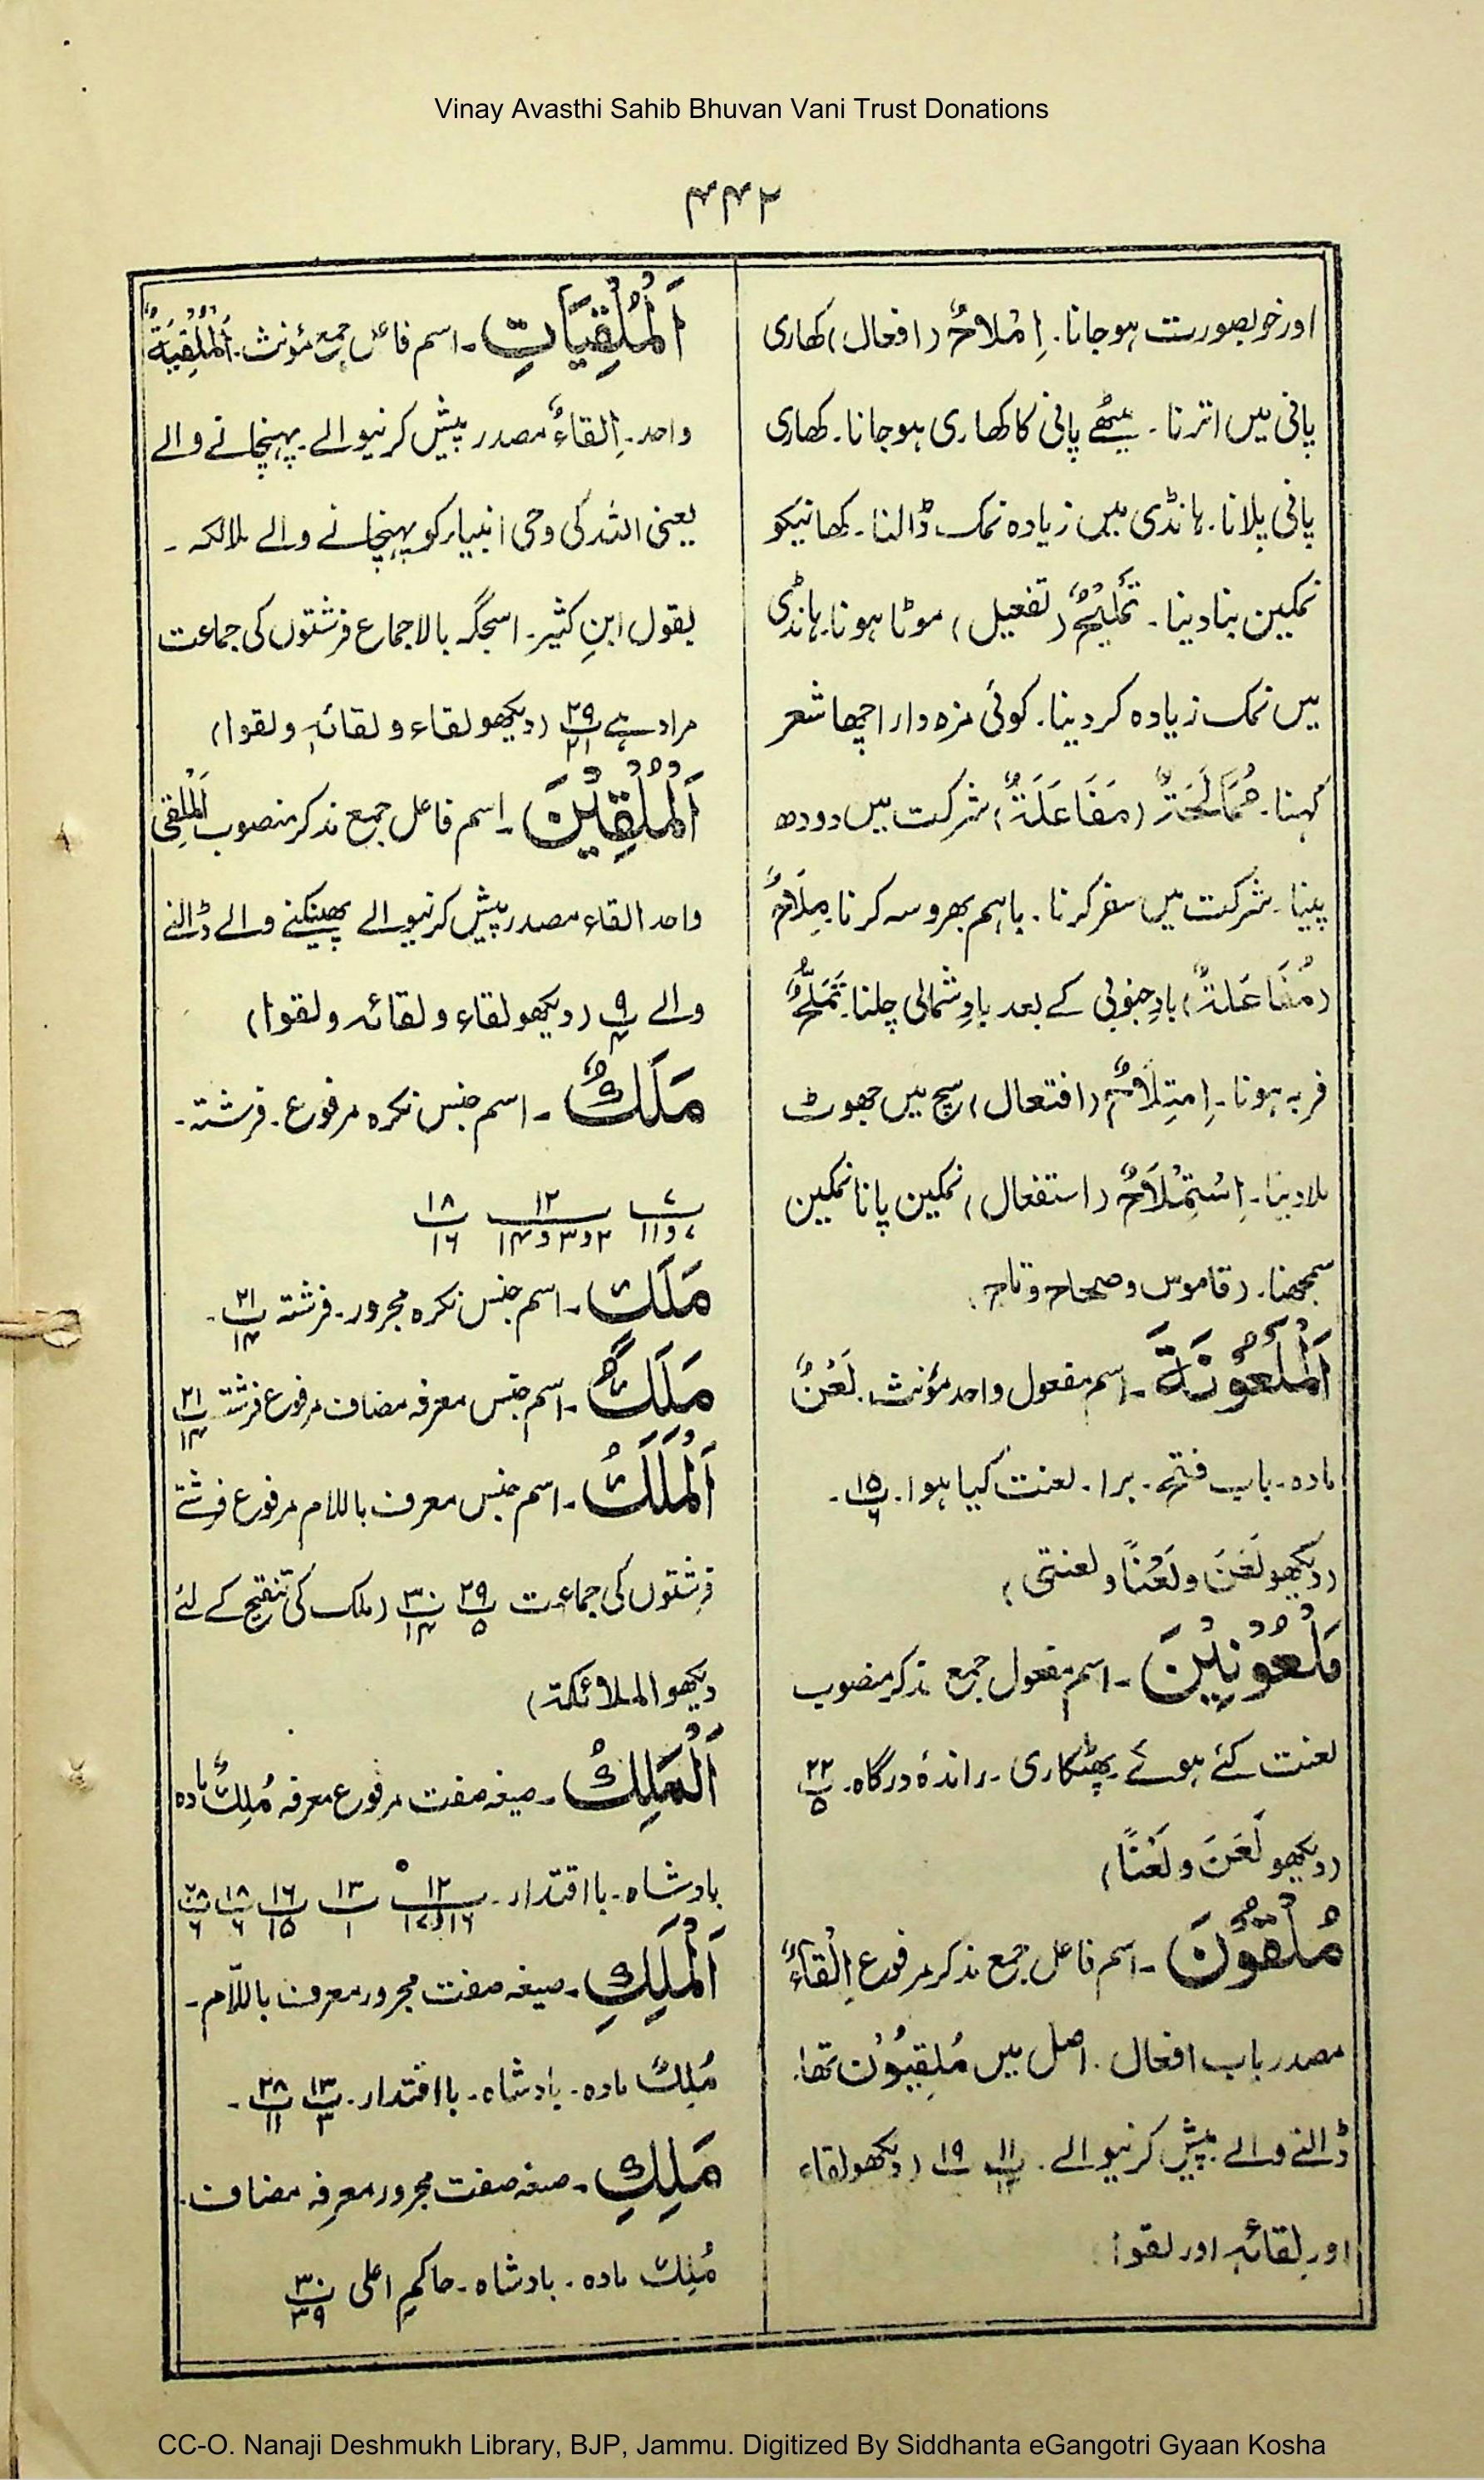 Vinay Avasthi Sahib Bhuvan Vani Trust Donations
۴۴۲
اور خوبصورت ہوجانا۔ اِمْلاحٌ (افعال) کھاری
پانی میں اترنا۔ میٹھے پانی کا کھاری ہوجانا۔ کھاری
پانی پلانا۔ ہانڈی میں زیادہ نمک ڈالنا۔ کھانیکو
نمکین بنادینا۔ تَمْلِیْحٌ (تفعیل) موٹا ہونا۔ ہانڈی
میں نمک زیادہ کردینا۔ کوئی مزہ دار اچھا شعر
کہنا۔ مُمَالَحَۃٌ (مَفَاعَلَۃٌ) شرکت میں دودھ
پینا۔ شرکت میں سفر کرنا۔ باہم بھروسہ کرنا۔ مِلَاحٌ
(مُفَاعَلۃٌ) بادِ جنوبی کے بعد بادِ شمالی چلنا۔ تَمَلُّحٌ
فربہ ہونا۔ اِمتِلَاحٌ (افتعال) سچ میں جھوٹ
ملادینا۔ اِسْتِمْلَاحٌ (استفعال) نمکین پانا نمکین
سمجھنا۔ (قاموس و صحاح و تاج)
اَلْمَلْعُوْنَۃَ۔ اسم مفعول واحد مؤنث۔ لَعْنٌ
مادہ۔ باب فتح۔ برا۔ لعنت کیا ہوا۔ پ ۱۵/۶۔
(دیکھو لَعَنَ و لَعْنًا و لعنتی)
مَلْعُوْنِیْنَ۔ اسم مفعول جمع مذکر منصوب
لعنت کئے ہوئے۔ پھٹکاری۔ راندۂ درگاہ۔ پ ۲۲/۵
(دیکھو لَعَنَ و لَعْنًا)
مُلْقُوْنَ۔ اسم فاعل جمع مذکر مرفوع اِلْقاءٌ
مصدر باب افعال۔ اصل میں مُلْقِیُوْن تھا۔
ڈالنے والے۔ پیش کرنیوالے۔ پ ۱۱/۱۲ پ ۱۹ (دیکھو لقاء
اور لِقائہٖ اور لقوا)
اَلْمُلْقِیَاتِ۔ اسم فاعل جمع مؤنث۔ اَلْمُلْقِیَۃُ
واحد۔ اِلقاءٌ مصدر پیش کرنیوالے۔ پہنچانے والے
یعنی اللہ کی وحی انبیاء کو پہنچانے والے ملائکہ۔
بقول ابنِ کثیر۔ اسجگہ بالاجماع فرشتوں کی جماعت
مراد ہے پ ۲۹/۲۱ (دیکھو لقاء و لقائہٖ و لقوا)
اَلْمُلْقِیْنَ۔ اسم فاعل جمع مذکر منصوب اَلْمُلْقِی
واحد القاء مصدر پیش کرنیوالے پھینکنے والے ڈالنے
والے پ ۹/۴ (دیکھو لقاء و لقائہ و لقوا)
مَلَكٌ۔ اسم جنس نکرہ مرفوع۔ فرشتہ۔
پ ۷/۷ و ۱۱ پ ۱۲/۲ و ۳ و ۱۴ پ ۱۸/۱۶
مَلَكٍ۔ اسم جنس نکرہ مجرور۔ فرشتہ پ ۲۱/۱۴۔
مَلَكُ۔ اسم جنس معرفہ مضاف مرفوع فرشتہ پ ۲۱/۱۴
اَلْمَلَكُ۔ اسم جنس معرف باللام مرفوع فرشتے
فرشتوں کی جماعت پ ۲۹/۵ پ ۳۰/۱۴ (ملک کی تنقیح کے لئے
دیکھو الملائکۃ)
اَلْمَلِكُ۔ صیغہ صفت مرفوع معرفہ مُلِكٌ مادہ
بادشاہ۔ با اقتدار۔ پ ۱۲/۱۶ و ۱۷ پ ۱۳/۱ پ ۱۶/۱۵ پ ۱۸/۶ پ ۲۸/۶
اَلْمَلِكِ۔ صیغہ صفت مجرور معرف باللّام۔
مُلِكٌ مادہ۔ بادشاہ۔ با اقتدار۔ پ ۱۳/۳ پ ۲۸/۱۱۔
مَلِكِ۔ صیغہ صفت مجرور معرفہ مضاف۔
مُلِكٌ مادہ۔ بادشاہ۔ حاکمِ اعلی پ ۳۰/۳۹
CC-O. Nanaji Deshmukh Library, BJP, Jammu. Digitized By Siddhanta eGangotri Gyaan Kosha